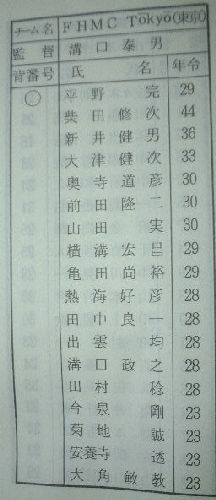 チーム名 FHMC Tokyo(東京)
監督 溝口泰男
背番号 氏名 年令
○ 平野完 29
柴田修次 44
新井健男 36
大津健次 33
奥寺道彦 30
前田隆二 30
山田実 30
横溝宏昌 29
亀田尚裕 29
熱海好彦 28
田中良一 28
出雲均 28
溝口政之 28
山村稔 28
今泉剛 23
菊地誠 23
安養寺透 23
大角敏教 23